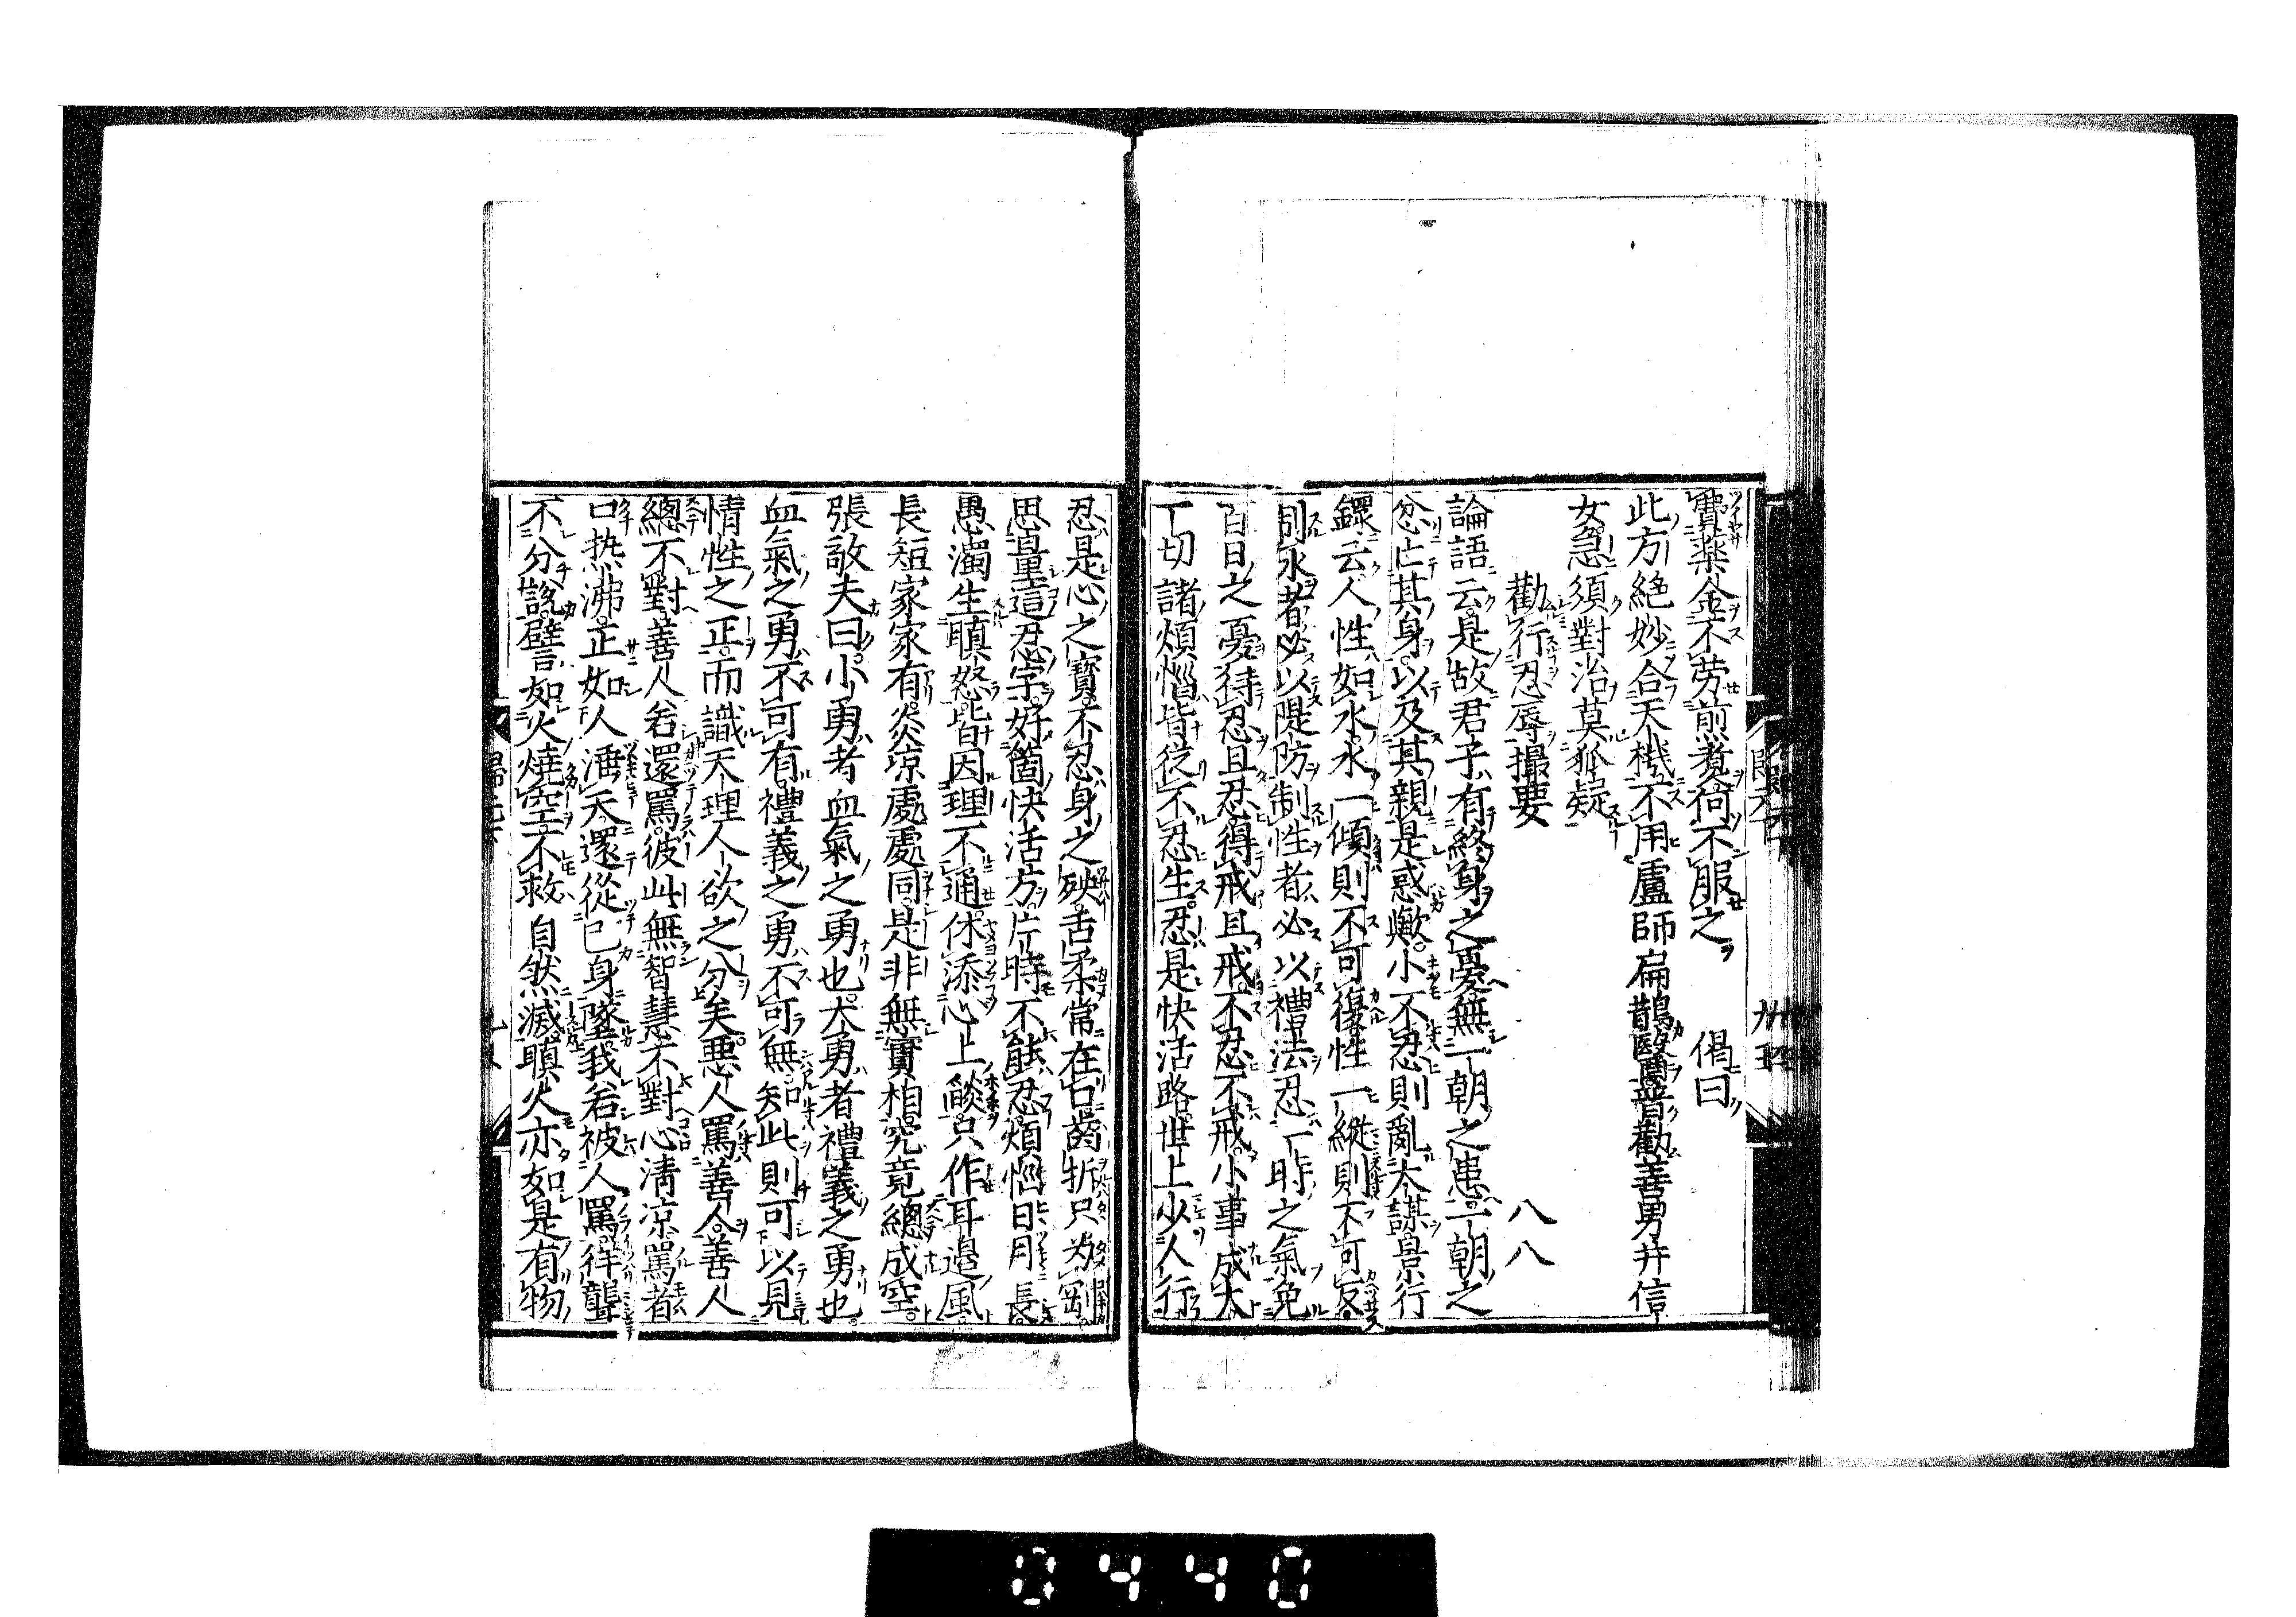 費藥金不勞煎煮何不服之　偈曰
此方絶妙合天機不用盧師扁鵲醫普勸善男并信
女急須對治莫狐疑
勸行忍辱撮要　八八
論語云是故君子有終身之憂無一朝之患一朝之
忿亡其身以及其親是惑歟小不忍則亂大謀景行
錄云人性如水水一傾則不可復性一縱則不可反
制水者必以隄防制性者必以禮法忍一時之氣免
百日之憂得忍且忍得戒且戒不忍不戒小事成大
一切諸煩惱皆從不忍生忍是快活路世上少人行
忍是心之寶不忍身之殃舌柔常在口齒折只爲剛
思量這忍字好箇快活方片時不能忍煩惱日月長
愚濁生瞋怒皆因理不通休添心上燄只作耳邊風
長短家家有炎凉處處同是非無實相究竟總成空
張敬夫曰小勇者血氣之勇也大勇者禮義之勇也
血氣之勇不可有禮義之勇不可無知此則可以見
情性之正而識天理人欲之分矣惡人罵善人善人
總不對善人若還罵彼此無智慧不對心淸凉罵者
口热沸正如人唾天還從己身墜我若被人罵佯聾
不分說譬如火燒空不救自然滅瞋火亦如是有物
歸元下
0440